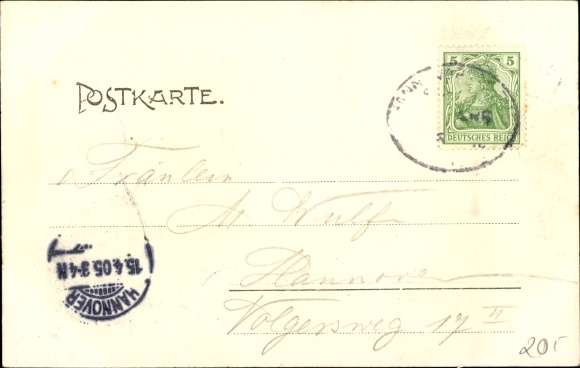 POSTKARTE.
5 5
DEUTSCHES REICH
Fräulein
M. Wulf
Hannover
Volgersweg 17 II
HANNOVER
15.4.05.3-4N
20